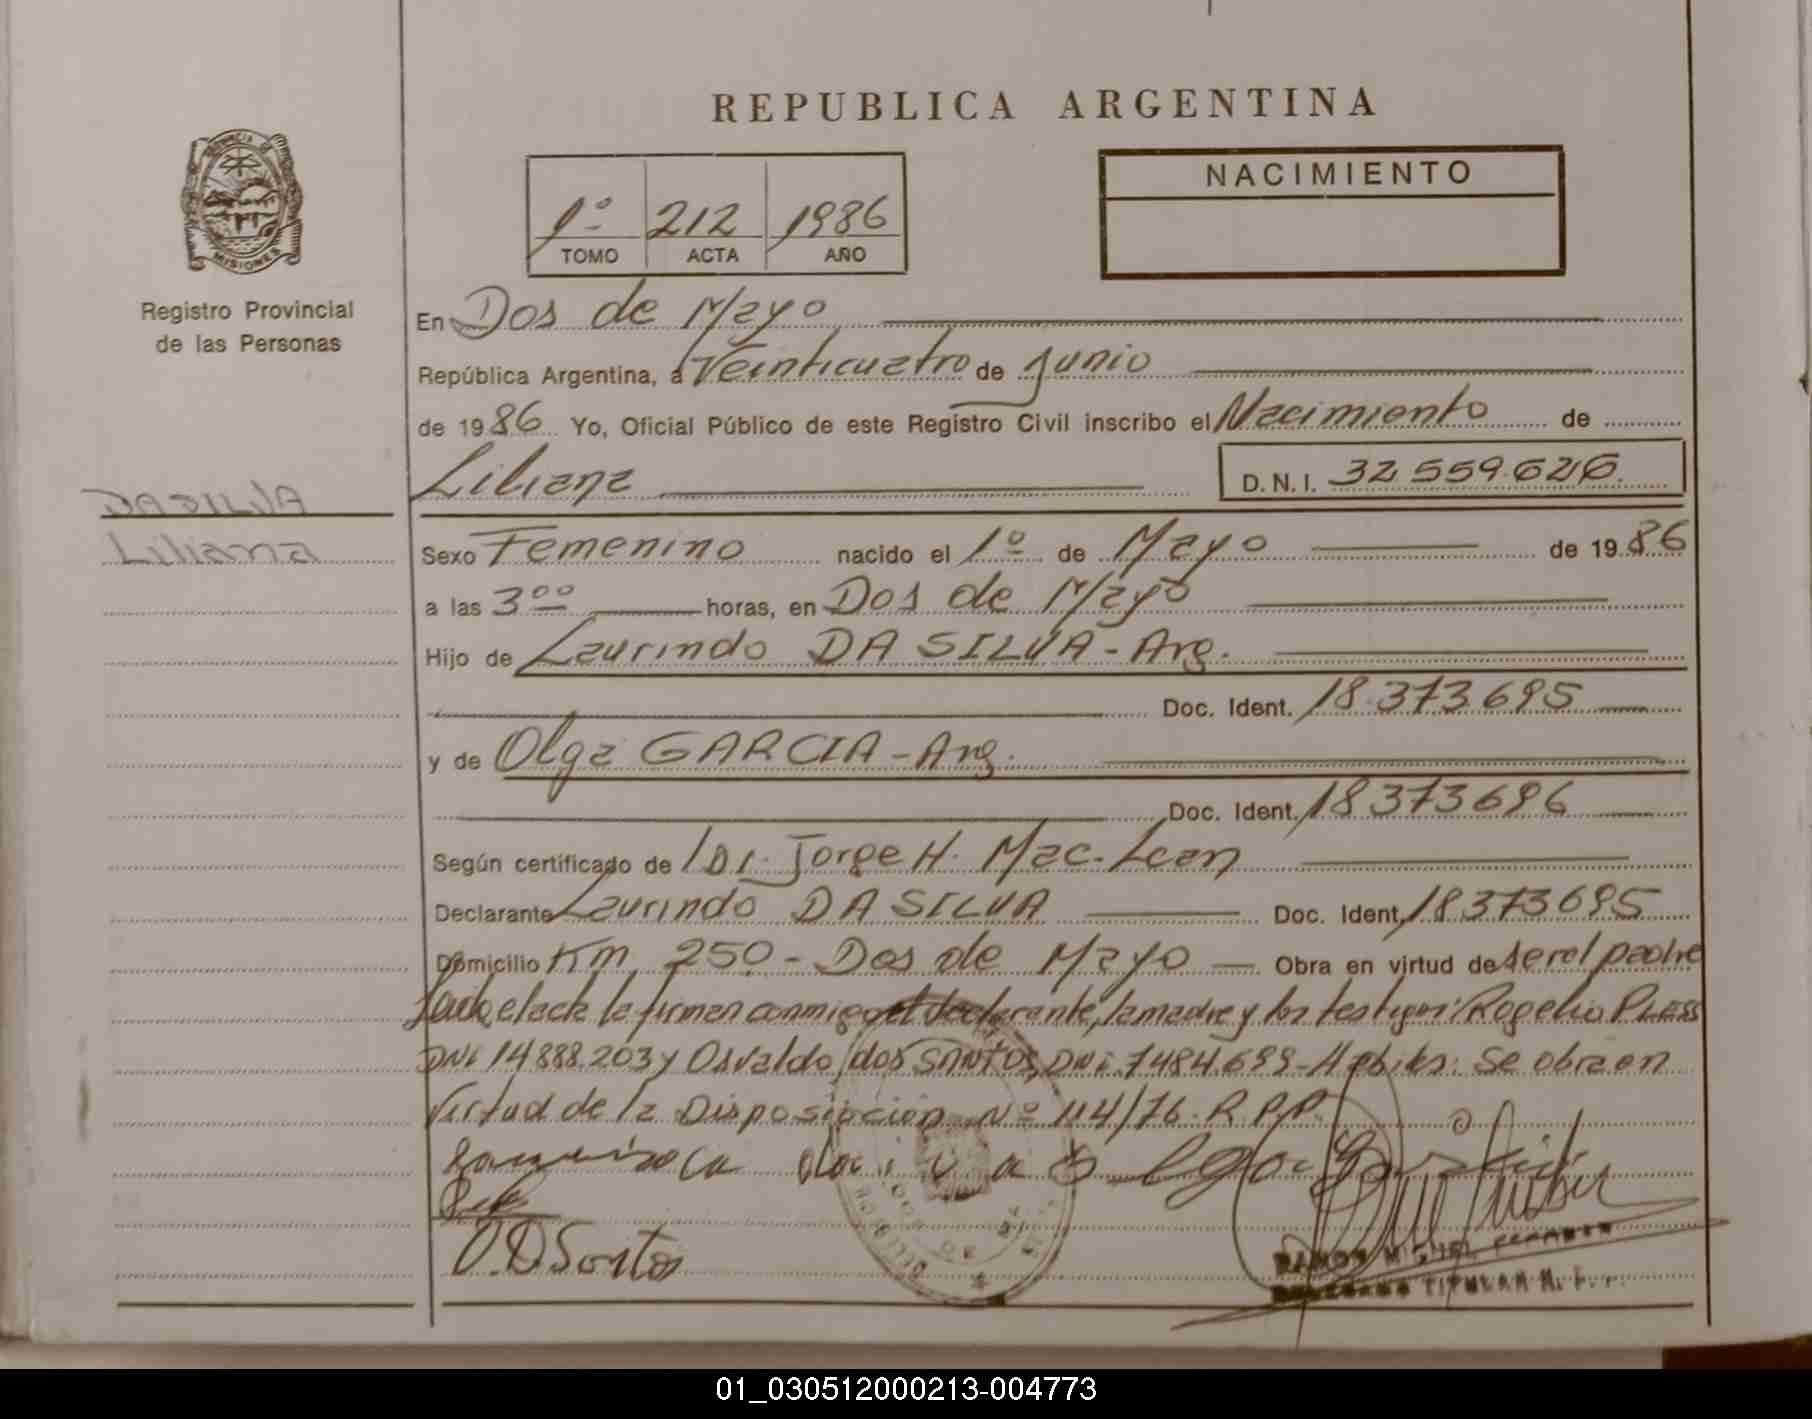 REPUBLICA ARGENTINA
PROVINCIA DE
MISIONES
Registro Provincial
de las Personas
1º 212 1986
TOMO ACTA AÑO
NACIMIENTO
En Dos de Mayo
República Argentina, a Veinticuatro de Junio
de 1986 Yo, Oficial Público de este Registro Civil inscribo el Nacimiento de
Liliana D.N.I. 32.559.626.
DA SILVA
Liliana
Sexo Femenino nacido el 1º de Mayo de 1986
a las 3ºº horas, en Dos de Mayo
Hijo de Laurindo DA SILVA - Arg.
Doc. Ident. 18.373.695
y de Olga GARCIA - Arg.
Doc. Ident. 18373696
Según certificado de Dr. Jorge H. Mac-Lean
Declarante Laurindo DA SILVA Doc. Ident. 18373695
Domicilio Km 250 - Dos de Mayo Obra en virtud de ser el padre
el acta la firman conmigo el declarante, la madre y los testigos: Rogelio PLESS
DNI 14.888.203 y Osvaldo dos SANTOS, DNI 7.484.699 - Se obra en
Virtud de la Disposición Nº 114/76. R.P.P.
O. D Santos
RAMON MIGUEL
TITULAR
01_030512000213-004773